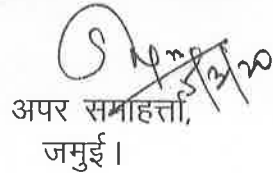 5/3/20
अपर समाहर्त्ता,
जमुई।